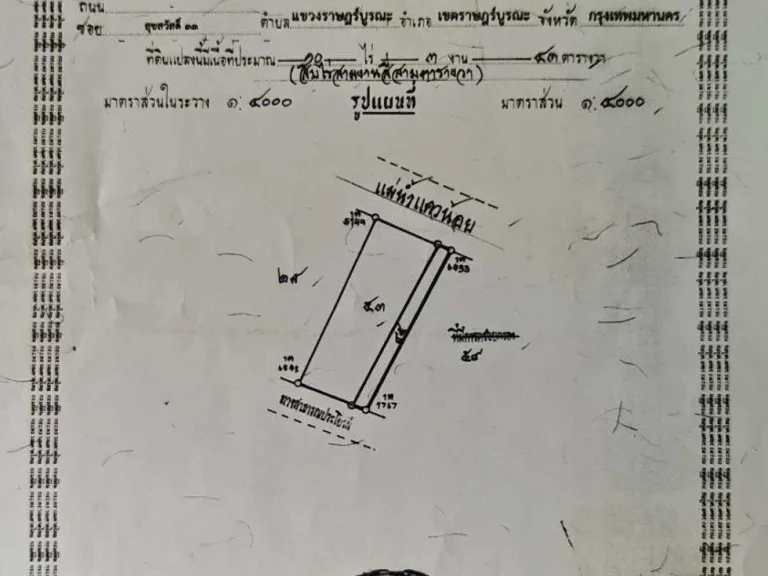 ถนน
ซอย สุขสวัสดิ์ ๓๓ ตำบล แขวงราษฎร์บูรณะ อำเภอ เขตราษฎร์บูรณะ จังหวัด กรุงเทพมหานคร
ที่ดินแปลงนี้มีเนื้อที่ประมาณ ๑๐ ไร่ ๓ งาน ๔๓ ตารางวา
(สิบไร่สามงานสี่สิบสามตารางวา)
มาตราส่วนในระวาง ๑:๔๐๐๐ รูปแผนที่ มาตราส่วน ๑:๔๐๐๐
แม่น้ำแควน้อย
๒๙
๕๓
๕๘
ทางสาธารณประโยชน์